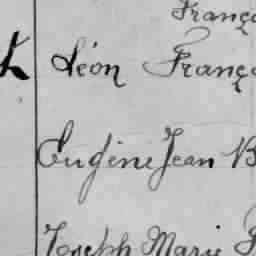 Franço
k Léon Franço
Eugène Jean B
Joseph Marie F